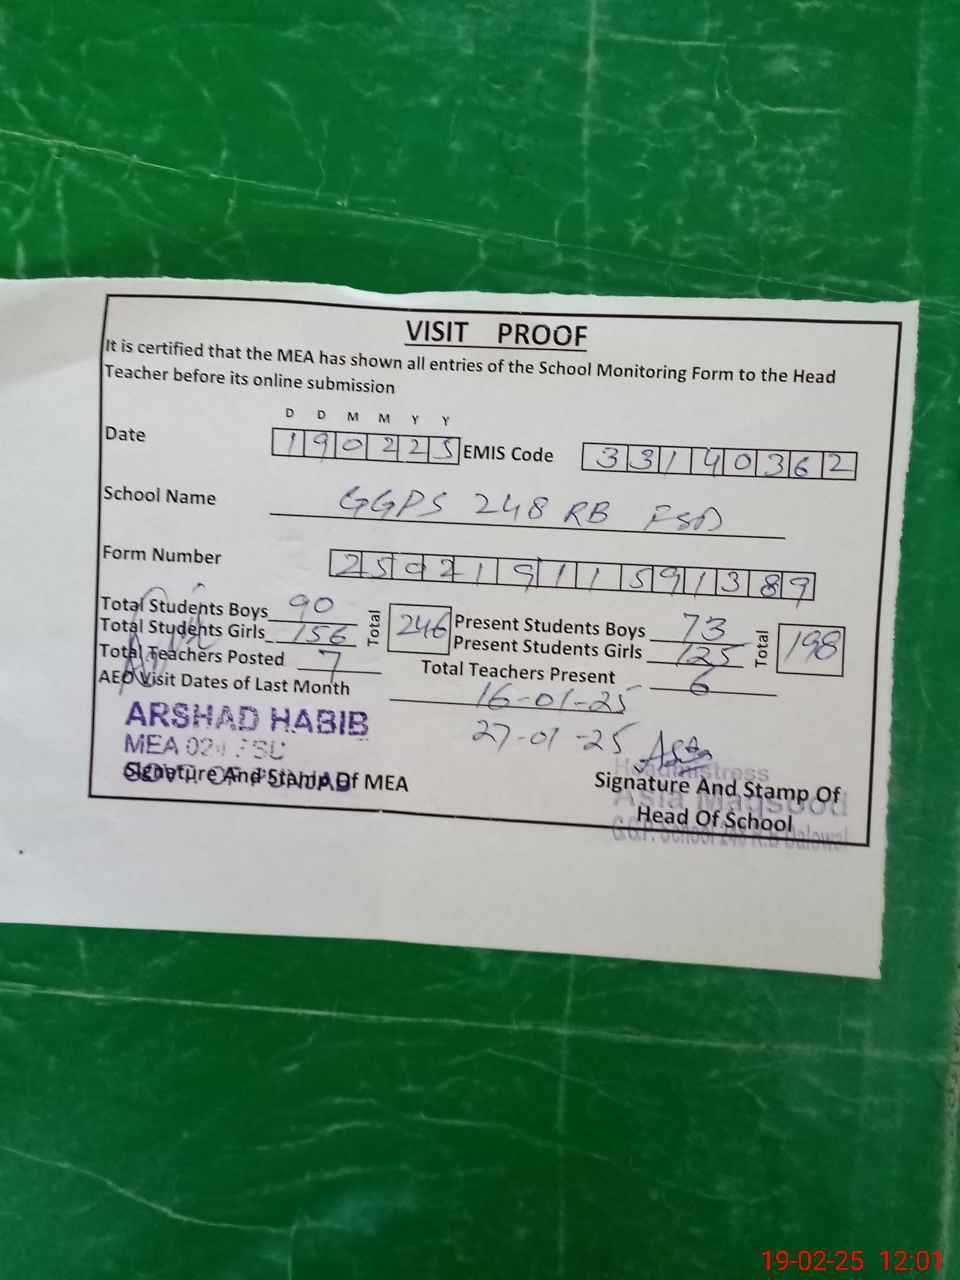 VISIT PROOF
It is certified that the MEA has shown all entries of the School Monitoring Form to the Head
Teacher before its online submission
D D M M Y Y
Date 190225 EMIS Code 33140362
School Name GGPS 248 RB FSD
Form Number 25021911591389
Total Students Boys 90 Total 246 Present Students Boys 73 Total 198
Total Students Girls 156 Present Students Girls 125
Total Teachers Posted 7 Total Teachers Present 6
AEO Visit Dates of Last Month 16-01-25
27-01-25
ARSHAD HABIB
MEA
GOVT OF PUNJAB
Signature And Stamp Of MEA
Headmistress
Asia Maqsood
G.G.P. School 248 R.B
Signature And Stamp Of
Head Of School
19-02-25 12:01